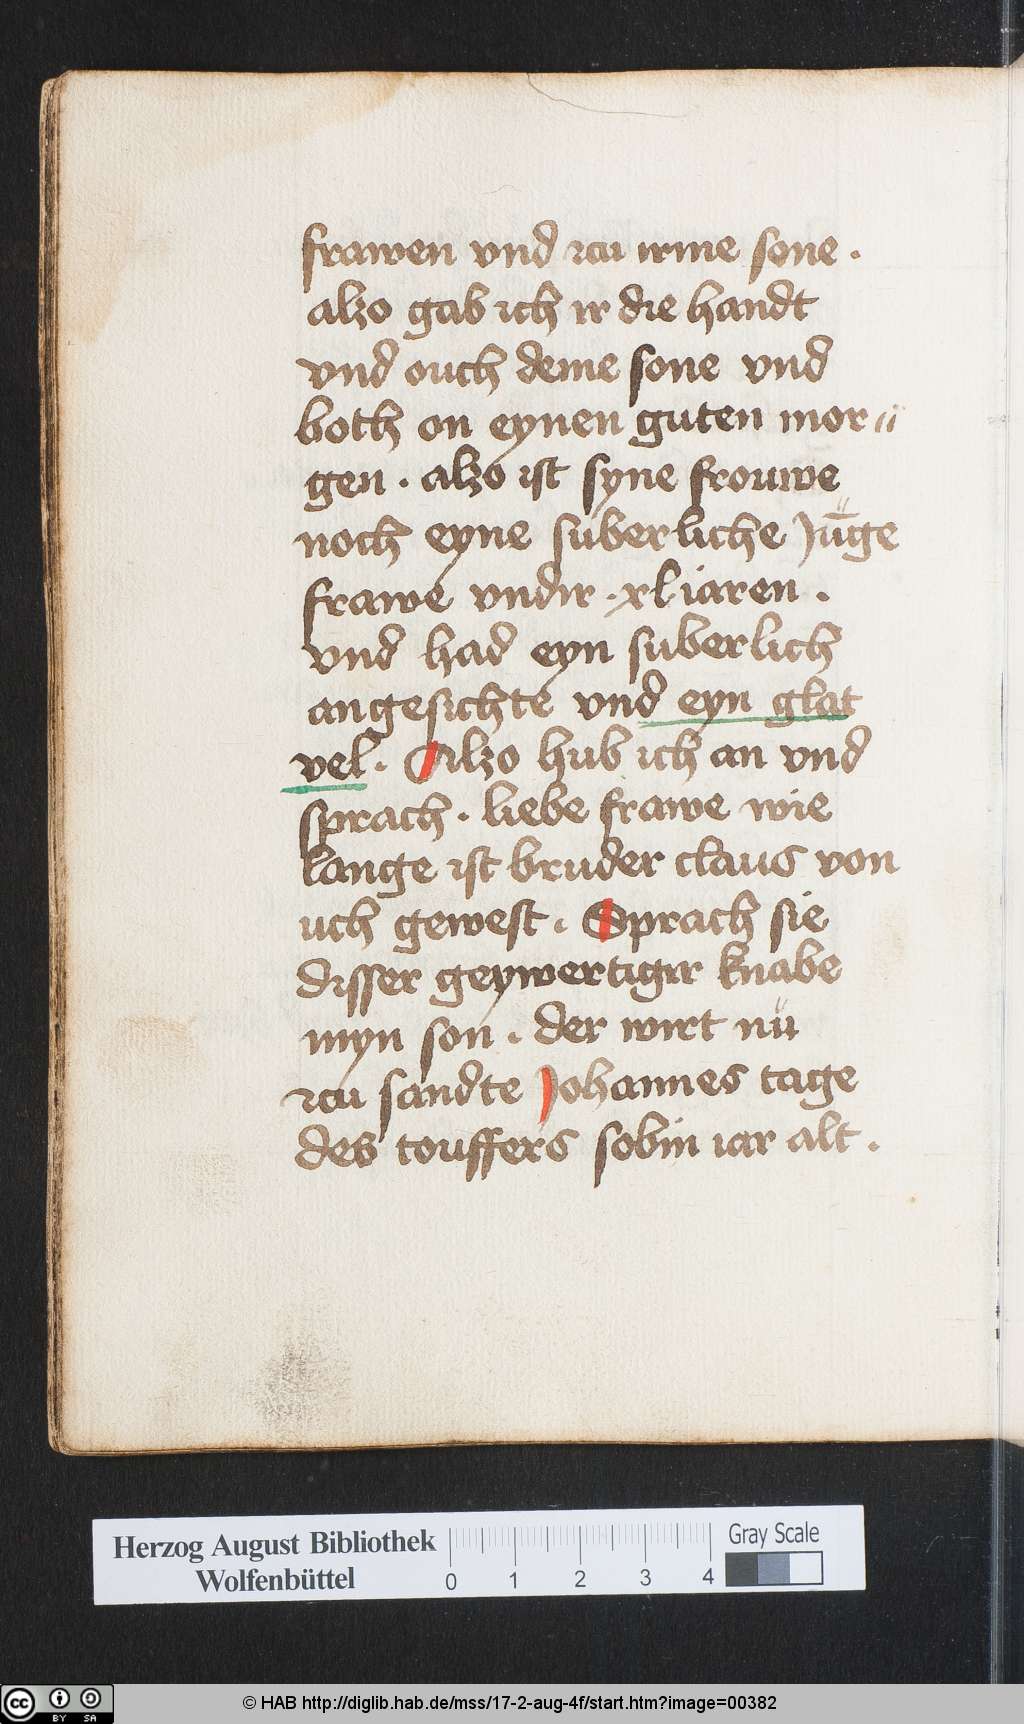 frawen vnd zcu irme sone .
alzo gab ich ir die handt
vnd ouch deme sone vnd
both on eynen guten mor //
gen . alzo ist syne frouwe
noch eyne suberliche Jūge
frawe vndir . xl iaren .
vnd had eyn suberlich
angesichte vnd eyn glat
vel . Alzo hub ich an vnd
sprach . liebe frawe wie
lange ist bruder claus von
uch gewest . Sprach sie
disser geywertigir knabe
myn son . der wirt nü
zcu sandte Johannes tage
des touffers sobin iar alt .
Herzog August Bibliothek
Wolfenbüttel
0 1 2 3 4
Gray Scale
cc BY SA
© HAB http://diglib.hab.de/mss/17-2-aug-4f/start.htm?image=00382